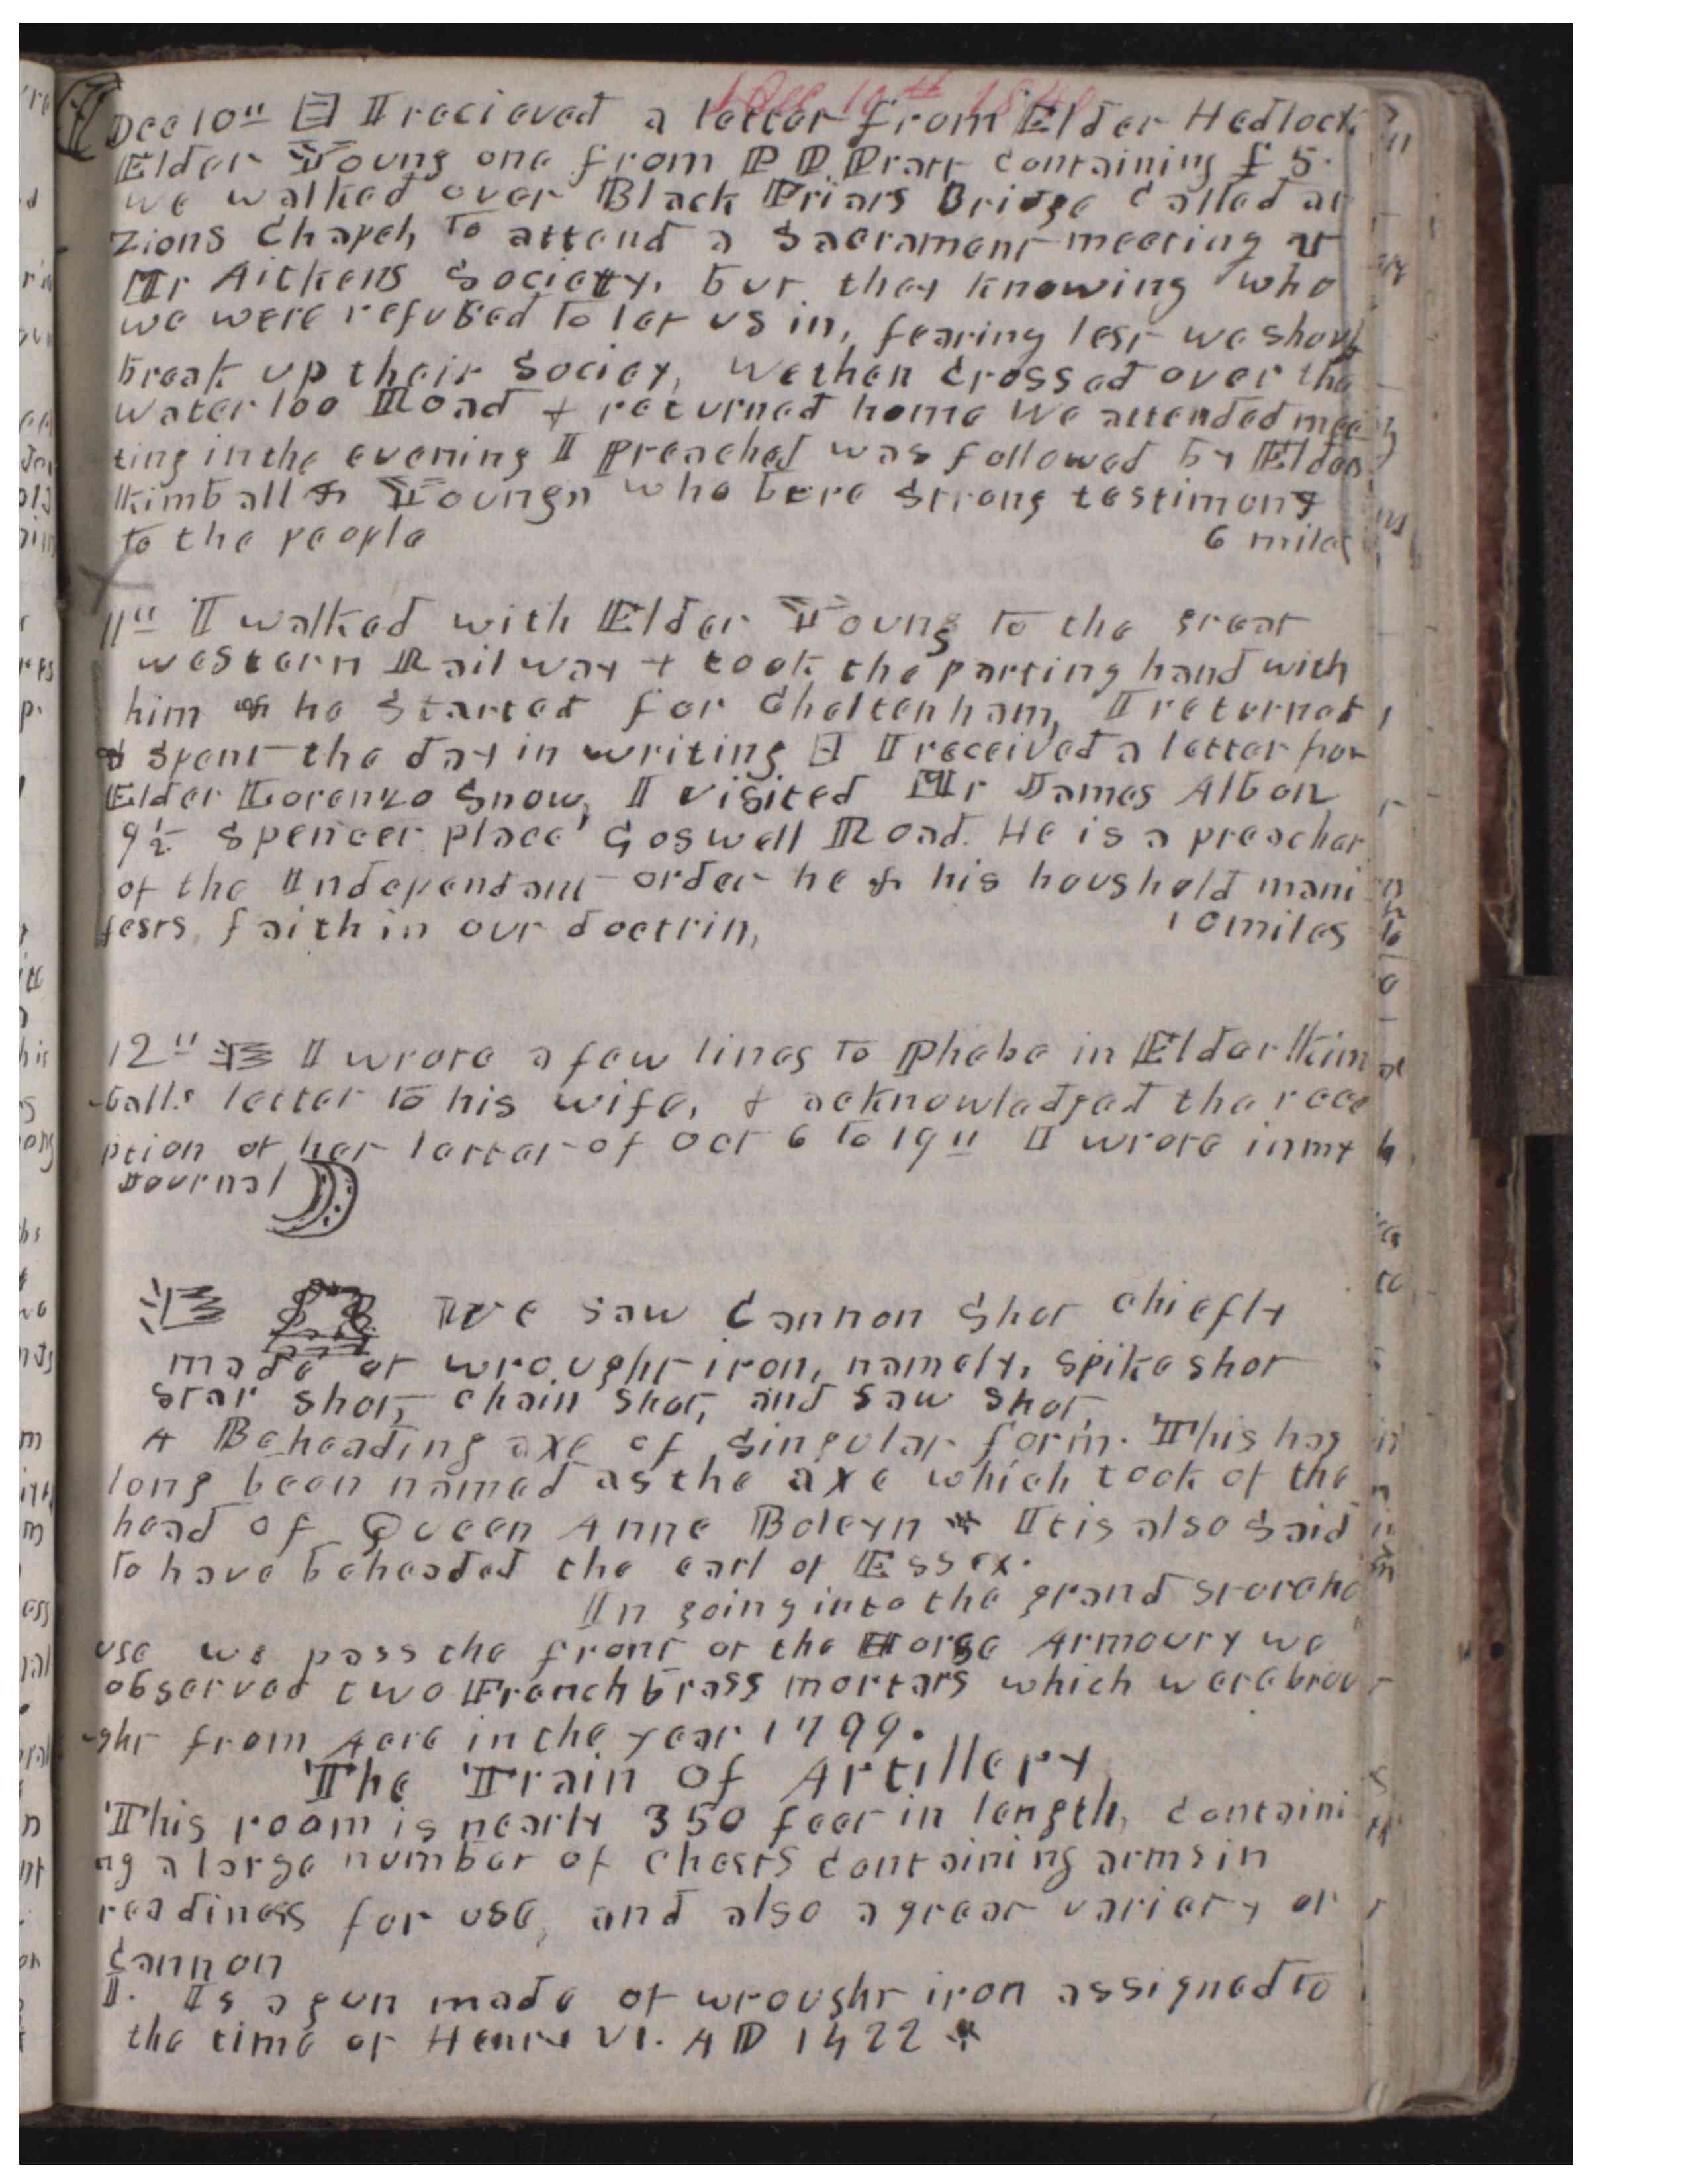 Dec 10th 1840
Dec 10" I recieved a letter from Elder Hedlock
Elder Young one from P P. Pratt containing £5.
we walked over Black Friars Bridge Called at
Zions Chapel, to attend a Sacrament meeting at
Mr Aitkens Society, but they knowing who
we were refused to let us in, fearing lest we should
break up their Society, we then Crossed over the
Waterloo Road & returned home We attended mee
ting in the evening I preached was followed by Elders
Kimball & Young who bore strong testimony
to the people 6 miles
11" I walked with Elder Young to the great
western Railway & took the parting hand with
him & he started for Cheltenham, I returned
& spent the day in writing I received a letter from
Elder Lorenzo Snow, I visited Mr James Albon
9½ Spencer place Goswell Road. He is a preacher
of the Independant order he & his houshold mani
fests faith in our doctrin, 10 miles
12" I wrote a few lines to Phebe in Elder Kim
-balls letter to his wife, & acknowledged the rece
ption of her letter of Oct 6 to 19" I wrote in my
Journal
We saw Cannon Shot chiefly
made of wrought iron, namely, spike shot
star shot, chain shot, and saw shot,
A Beheading axe of singular form. This has
long been named as the axe which took of the
head of Queen Anne Boleyn * It is also said
to have beheaded the earl of Essex.
In going into the grand storeho
use we pass the front of the Horse Armoury we
observed two French brass mortars which were brou
-ght from Acre in the year 1799.
The Train of Artillery
This room is nearly 350 feet in length, containi
ng a large number of chests containing arms in
readiness for use, and also a great variety of
Cannon
I. Is a gun made of wrought iron assigned to
the time of Henry VI. AD 1422 *